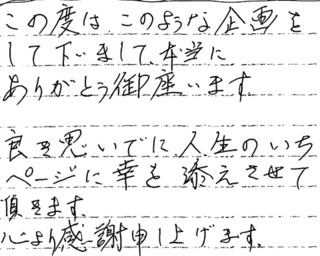 この度は このような企画を
して下いまして、本当に
ありがとう御座います

良き思いでに人生のいち
ページに幸を添えさせて
頂きます。
心より感謝申し上げます。